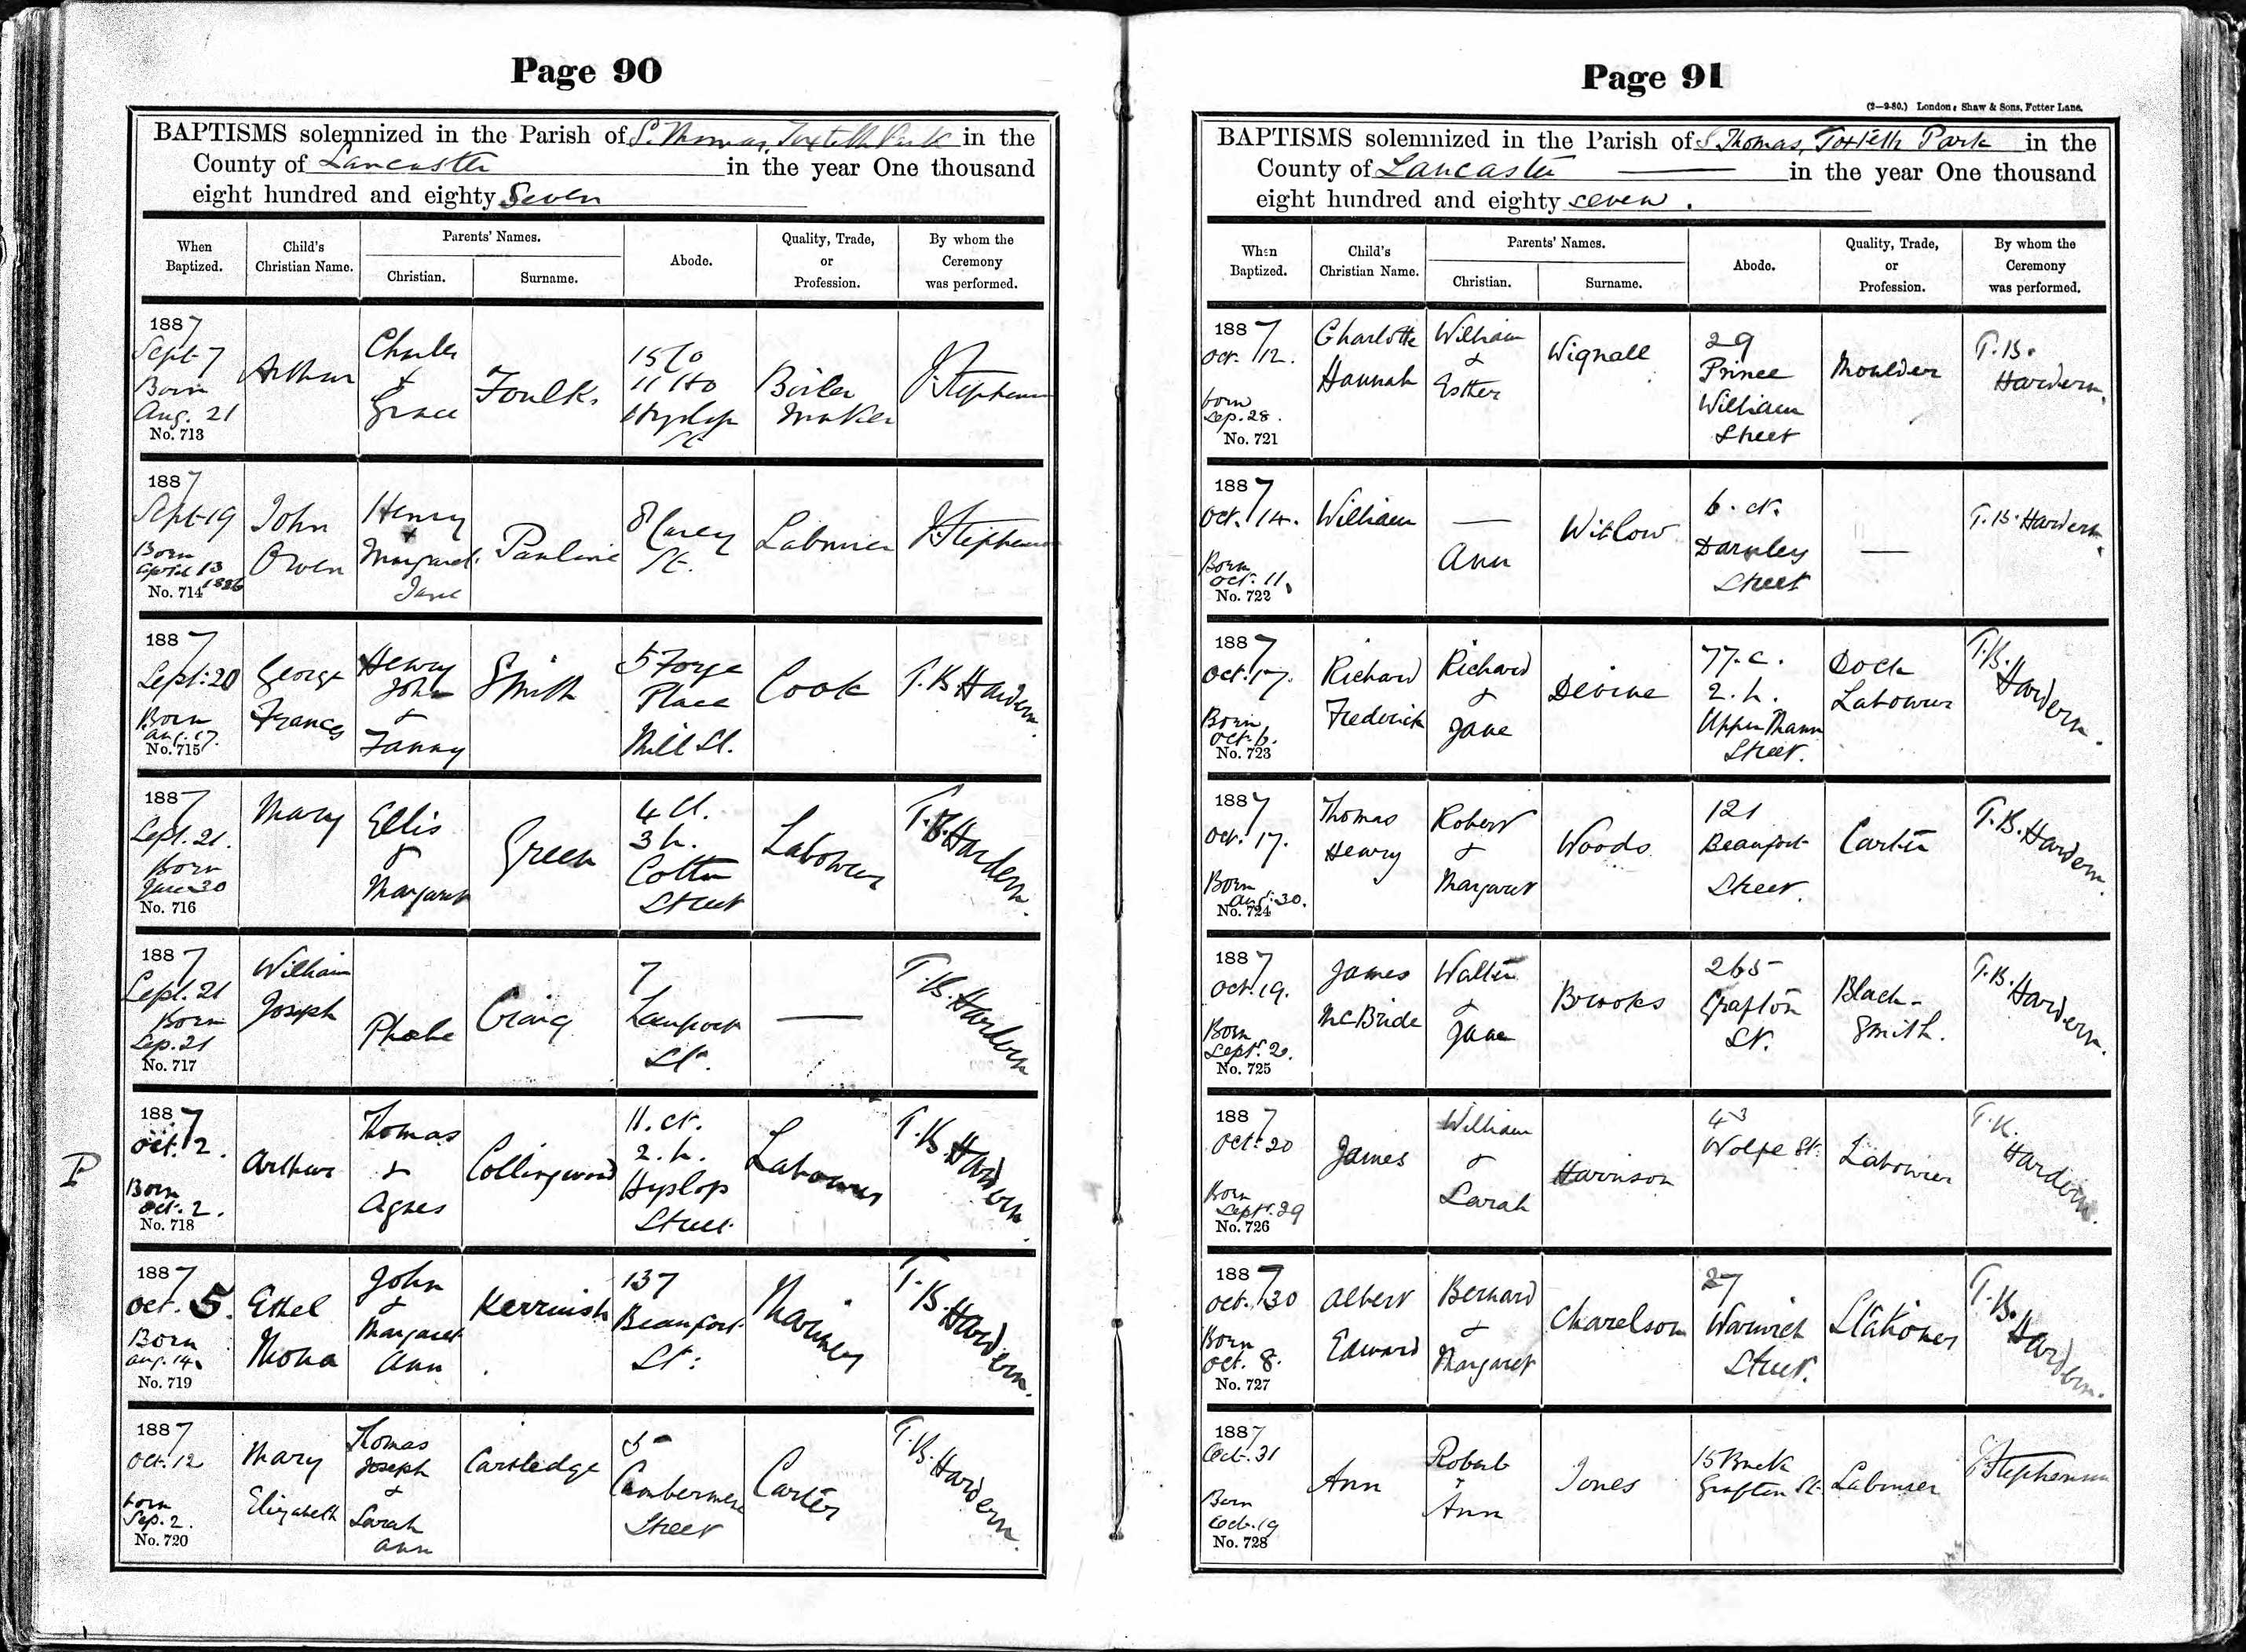 Page 90
BAPTISMS solemnized in the Parish of St. Thomas, Toxteth Park in the
County of Lancaster in the year One thousand
eight hundred and eighty Seven
When Baptized.
Child's Christian Name.
Parents' Names.
Christian.
Surname.
Abode.
Quality, Trade, or Profession.
By whom the Ceremony was performed.
1887
Sept 7
Born
Aug. 21
No. 713
Arthur
Charles
&
Grace
Foulks
Hyslop
St
Boiler
Maker
J. Stephenson
1887
Sept 19
Born
April 13
1886
No. 714
John
Owen
Henry
&
Margaret
Jane
Pauline
8 Carey
St.
Labourer
J. Stephenson
1887
Sept: 20
Born
Aug. 17.
No. 715
George
Frances
Henry
John
&
Fanny
Smith
5 Forge
Place
Mill St.
Cook
T. B. Hardern.
1887
Sept. 21.
Born
June 30
No. 716
Mary
Ellis
&
Margaret
Green
4 Ct.
3 h.
Cotton
Street
Labourer
T. B. Hardern.
1887
Sept. 21
Born
Sep. 21
No. 717
William
Joseph
Phoebe
Craig
7
St.
—
T. B. Hardern
P
1887
Oct. 2.
Born
Oct. 2.
No. 718
Arthur
Thomas
&
Agnes
Collingwood
11. ct.
2. h.
Hyslop
Street
Labourer
T. B. Hardern.
1887
Oct. 5.
Born
Aug. 14.
No. 719
Ethel
Mona
John
&
Margaret
Ann
Kerruish
137
Beaufort
St:
Mariner
T. B. Hardern.
1887
Oct. 12
born
Sep. 2.
No. 720
Mary
Elizabeth
Thomas
Joseph
&
Sarah
Ann
Cartledge
5
Combermere
Street
Carter
T. B. Hardern.
Page 91
(2—9-80.) London: Shaw & Sons, Fetter Lane.
BAPTISMS solemnized in the Parish of S Thomas, Toxteth Park in the
County of Lancaster in the year One thousand
eight hundred and eighty seven.
When Baptized.
Child's Christian Name.
Parents' Names.
Christian.
Surname.
Abode.
Quality, Trade, or Profession.
By whom the Ceremony was performed.
1887
Oct. 12.
born
Sep. 28.
No. 721
Charlotte
Hannah
William
&
Esther
Wignall
29
Prince
William
Street
Moulder
T. B.
Hardern.
1887
Oct. 14.
Born
Oct. 11.
No. 722
William
—
Ann
Witlow
6. ct.
Darnley
Street
—
T. B. Hardern.
1887
Oct. 17.
Born
Oct. 6.
No. 723
Richard
Frederick
Richard
&
Jane
Devine
77. c.
2. h.
Upper Mann
Street.
Dock
Labourer
T. B. Hardern.
1887
Oct. 17.
Born
Aug. 30.
No. 724
Thomas
Henry
Robert
&
Margaret
Woods
121
Beaufort
Street.
Carter
T. B. Hardern.
1887
Oct. 19.
Born
Sept. 2.
No. 725
James
McBride
Walter
&
Jane
Brooks
265
Grafton
St.
Black-
Smith.
T. B. Hardern.
1887
Oct. 20
Born
Sept. 29
No. 726
James
William
&
Sarah
Harrison
43
Wolfe St.
Labourer
Hardern.
1887
Oct. 30
Born
Oct. 8.
No. 727
Albert
Edward
Bernard
&
Margaret
Charelson
27
Warwick
Street.
Stationer
T. B. Hardern.
1887
Oct. 31
Born
Oct. 19
No. 728
Ann
Robert
+
Ann
Jones
15 Back
Grafton St.
Labourer
J Stephenson